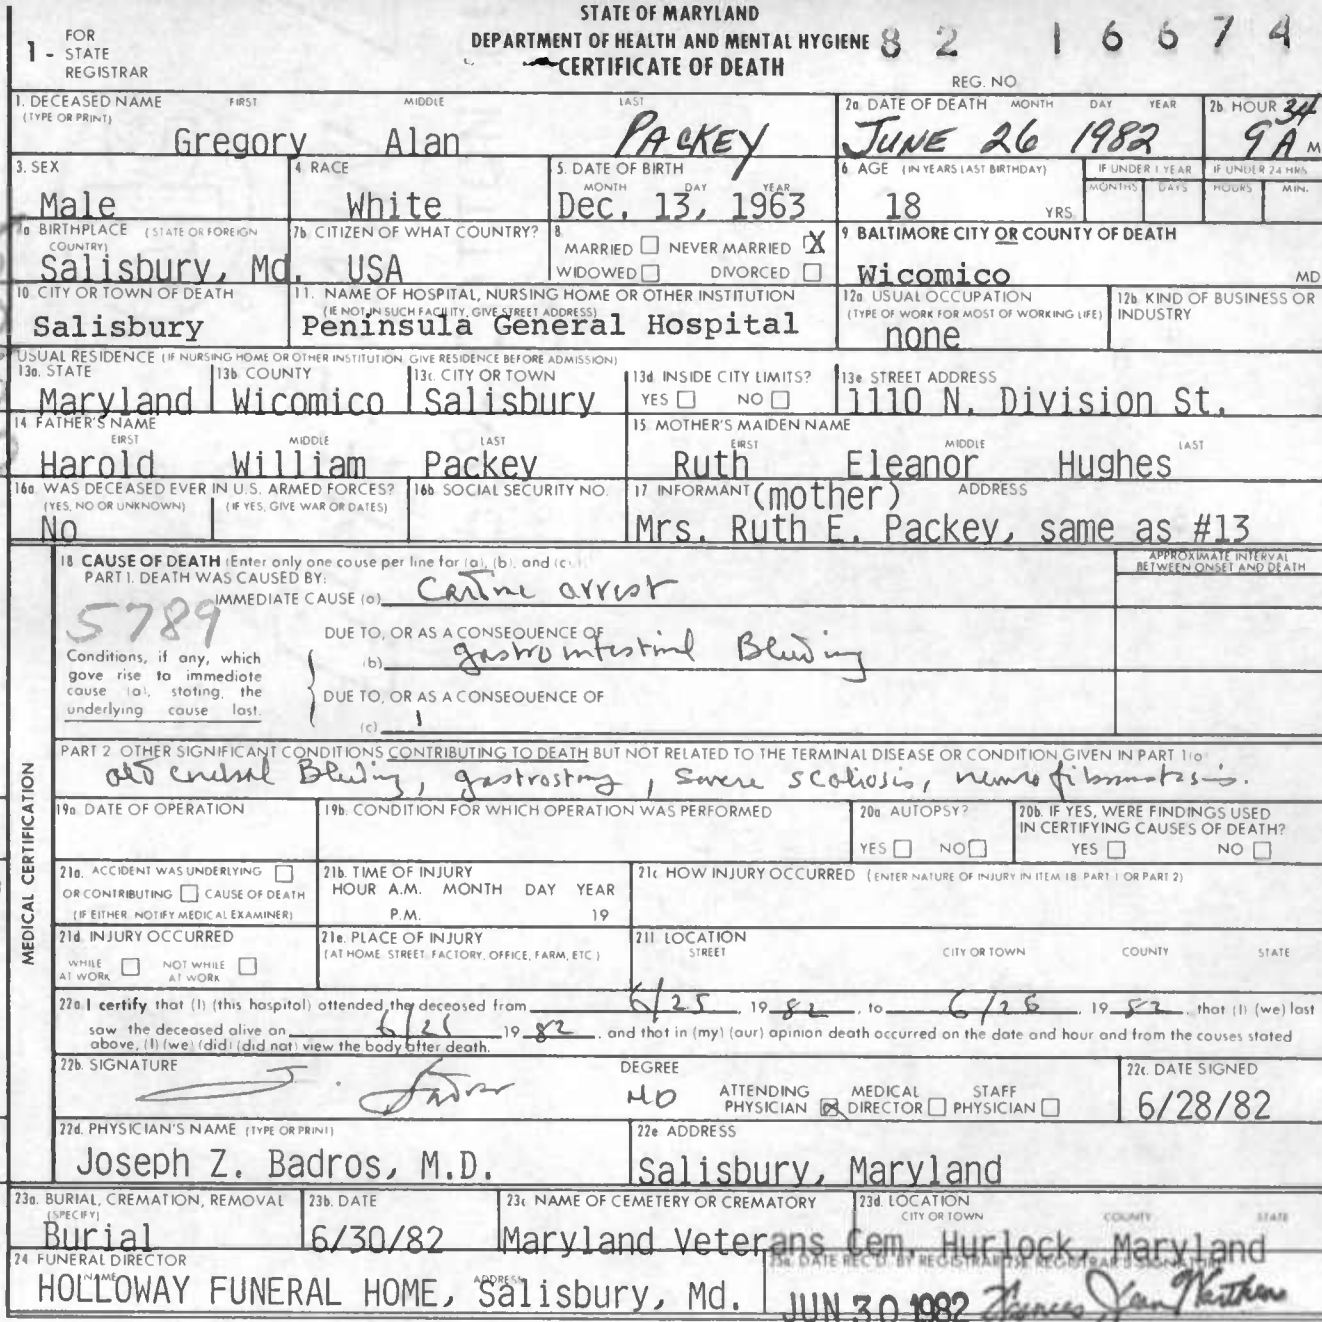 STATE OF MARYLAND
DEPARTMENT OF HEALTH AND MENTAL HYGIENE 82 16674
CERTIFICATE OF DEATH
1 - FOR STATE REGISTRAR
REG. NO
1. DECEASED NAME FIRST MIDDLE LAST
(TYPE OR PRINT)
Gregory Alan PACKEY
2a. DATE OF DEATH MONTH DAY YEAR
JUNE 26 1982
2b. HOUR 34
9 A M
3. SEX
Male
4. RACE
White
5. DATE OF BIRTH
MONTH DAY YEAR
Dec. 13, 1963
6. AGE (IN YEARS LAST BIRTHDAY)
18 YRS.
IF UNDER 1 YEAR
MONTHS DAYS
IF UNDER 24 HRS
HOURS MIN.
7a BIRTHPLACE (STATE OR FOREIGN
COUNTRY)
Salisbury, Md.
7b CITIZEN OF WHAT COUNTRY?
USA
8
MARRIED NEVER MARRIED X
WIDOWED DIVORCED
9 BALTIMORE CITY OR COUNTY OF DEATH
Wicomico MD
10. CITY OR TOWN OF DEATH
Salisbury
11. NAME OF HOSPITAL, NURSING HOME OR OTHER INSTITUTION
(IF NOT IN SUCH FACILITY, GIVE STREET ADDRESS)
Peninsula General Hospital
12a. USUAL OCCUPATION
(TYPE OF WORK FOR MOST OF WORKING LIFE)
none
12b. KIND OF BUSINESS OR
INDUSTRY
USUAL RESIDENCE (IF NURSING HOME OR OTHER INSTITUTION GIVE RESIDENCE BEFORE ADMISSION)
13a. STATE
Maryland
13b COUNTY
Wicomico
13c. CITY OR TOWN
Salisbury
13d INSIDE CITY LIMITS?
YES NO
13e STREET ADDRESS
1110 N. Division St.
14 FATHER'S NAME
FIRST MIDDLE LAST
Harold William Packey
15 MOTHER'S MAIDEN NAME
FIRST MIDDLE LAST
Ruth Eleanor Hughes
16a WAS DECEASED EVER IN U.S. ARMED FORCES?
(YES, NO OR UNKNOWN) (IF YES, GIVE WAR OR DATES)
No
16b SOCIAL SECURITY NO.
17 INFORMANT (mother) ADDRESS
Mrs. Ruth E. Packey, same as #13
MEDICAL CERTIFICATION
18 CAUSE OF DEATH (Enter only one cause per line for (a), (b), and (c).)
APPROXIMATE INTERVAL
BETWEEN ONSET AND DEATH
PART I. DEATH WAS CAUSED BY:
IMMEDIATE CAUSE (a) arrest
5789
DUE TO, OR AS A CONSEQUENCE OF
(b) gastrointestinal Bleeding
Conditions, if any, which
gave rise to immediate
cause (a), stating, the
underlying cause last.
DUE TO, OR AS A CONSEQUENCE OF
(c)
PART 2 OTHER SIGNIFICANT CONDITIONS CONTRIBUTING TO DEATH BUT NOT RELATED TO THE TERMINAL DISEASE OR CONDITION GIVEN IN PART 1(a)
old cerebral Bleeding, gastrostomy, severe scoliosis, neurofibromatosis.
19a. DATE OF OPERATION
19b. CONDITION FOR WHICH OPERATION WAS PERFORMED
20a AUTOPSY?
YES NO
20b. IF YES, WERE FINDINGS USED
IN CERTIFYING CAUSES OF DEATH?
YES NO
21a. ACCIDENT WAS UNDERLYING
OR CONTRIBUTING CAUSE OF DEATH
(IF EITHER NOTIFY MEDICAL EXAMINER)
21b. TIME OF INJURY
HOUR A.M. MONTH DAY YEAR
P.M. 19
21c HOW INJURY OCCURRED (ENTER NATURE OF INJURY IN ITEM 18 PART I OR PART 2)
21d INJURY OCCURRED
WHILE AT WORK NOT WHILE AT WORK
21e. PLACE OF INJURY
(AT HOME STREET FACTORY, OFFICE, FARM, ETC)
21f LOCATION
STREET CITY OR TOWN COUNTY STATE
22a I certify that (I) (this hospital) attended the deceased from 6/25 19 82 to 6/26 19 82 that (I) (we) last
saw the deceased alive on 19 82 and that in (my) (our) opinion death occurred on the date and hour and from the causes stated
above, (I) (we) (did) (did not) view the body after death.
22b. SIGNATURE
J. Badros
DEGREE
MD
ATTENDING PHYSICIAN X MEDICAL DIRECTOR STAFF PHYSICIAN
22c. DATE SIGNED
6/28/82
22d. PHYSICIAN'S NAME (TYPE OR PRINT)
Joseph Z. Badros, M.D.
22e ADDRESS
Salisbury, Maryland
23a. BURIAL, CREMATION, REMOVAL
(SPECIFY)
Burial
23b. DATE
6/30/82
23c NAME OF CEMETERY OR CREMATORY
Maryland Veterans Cem.
23d. LOCATION
CITY OR TOWN COUNTY STATE
Hurlock, Maryland
24 FUNERAL DIRECTOR
NAME ADDRESS
HOLLOWAY FUNERAL HOME, Salisbury, Md.
25a. DATE REC'D. BY REGISTRAR
JUN 30 1982
25b REGISTRAR'S SIGNATURE
Frances Jean Warthen